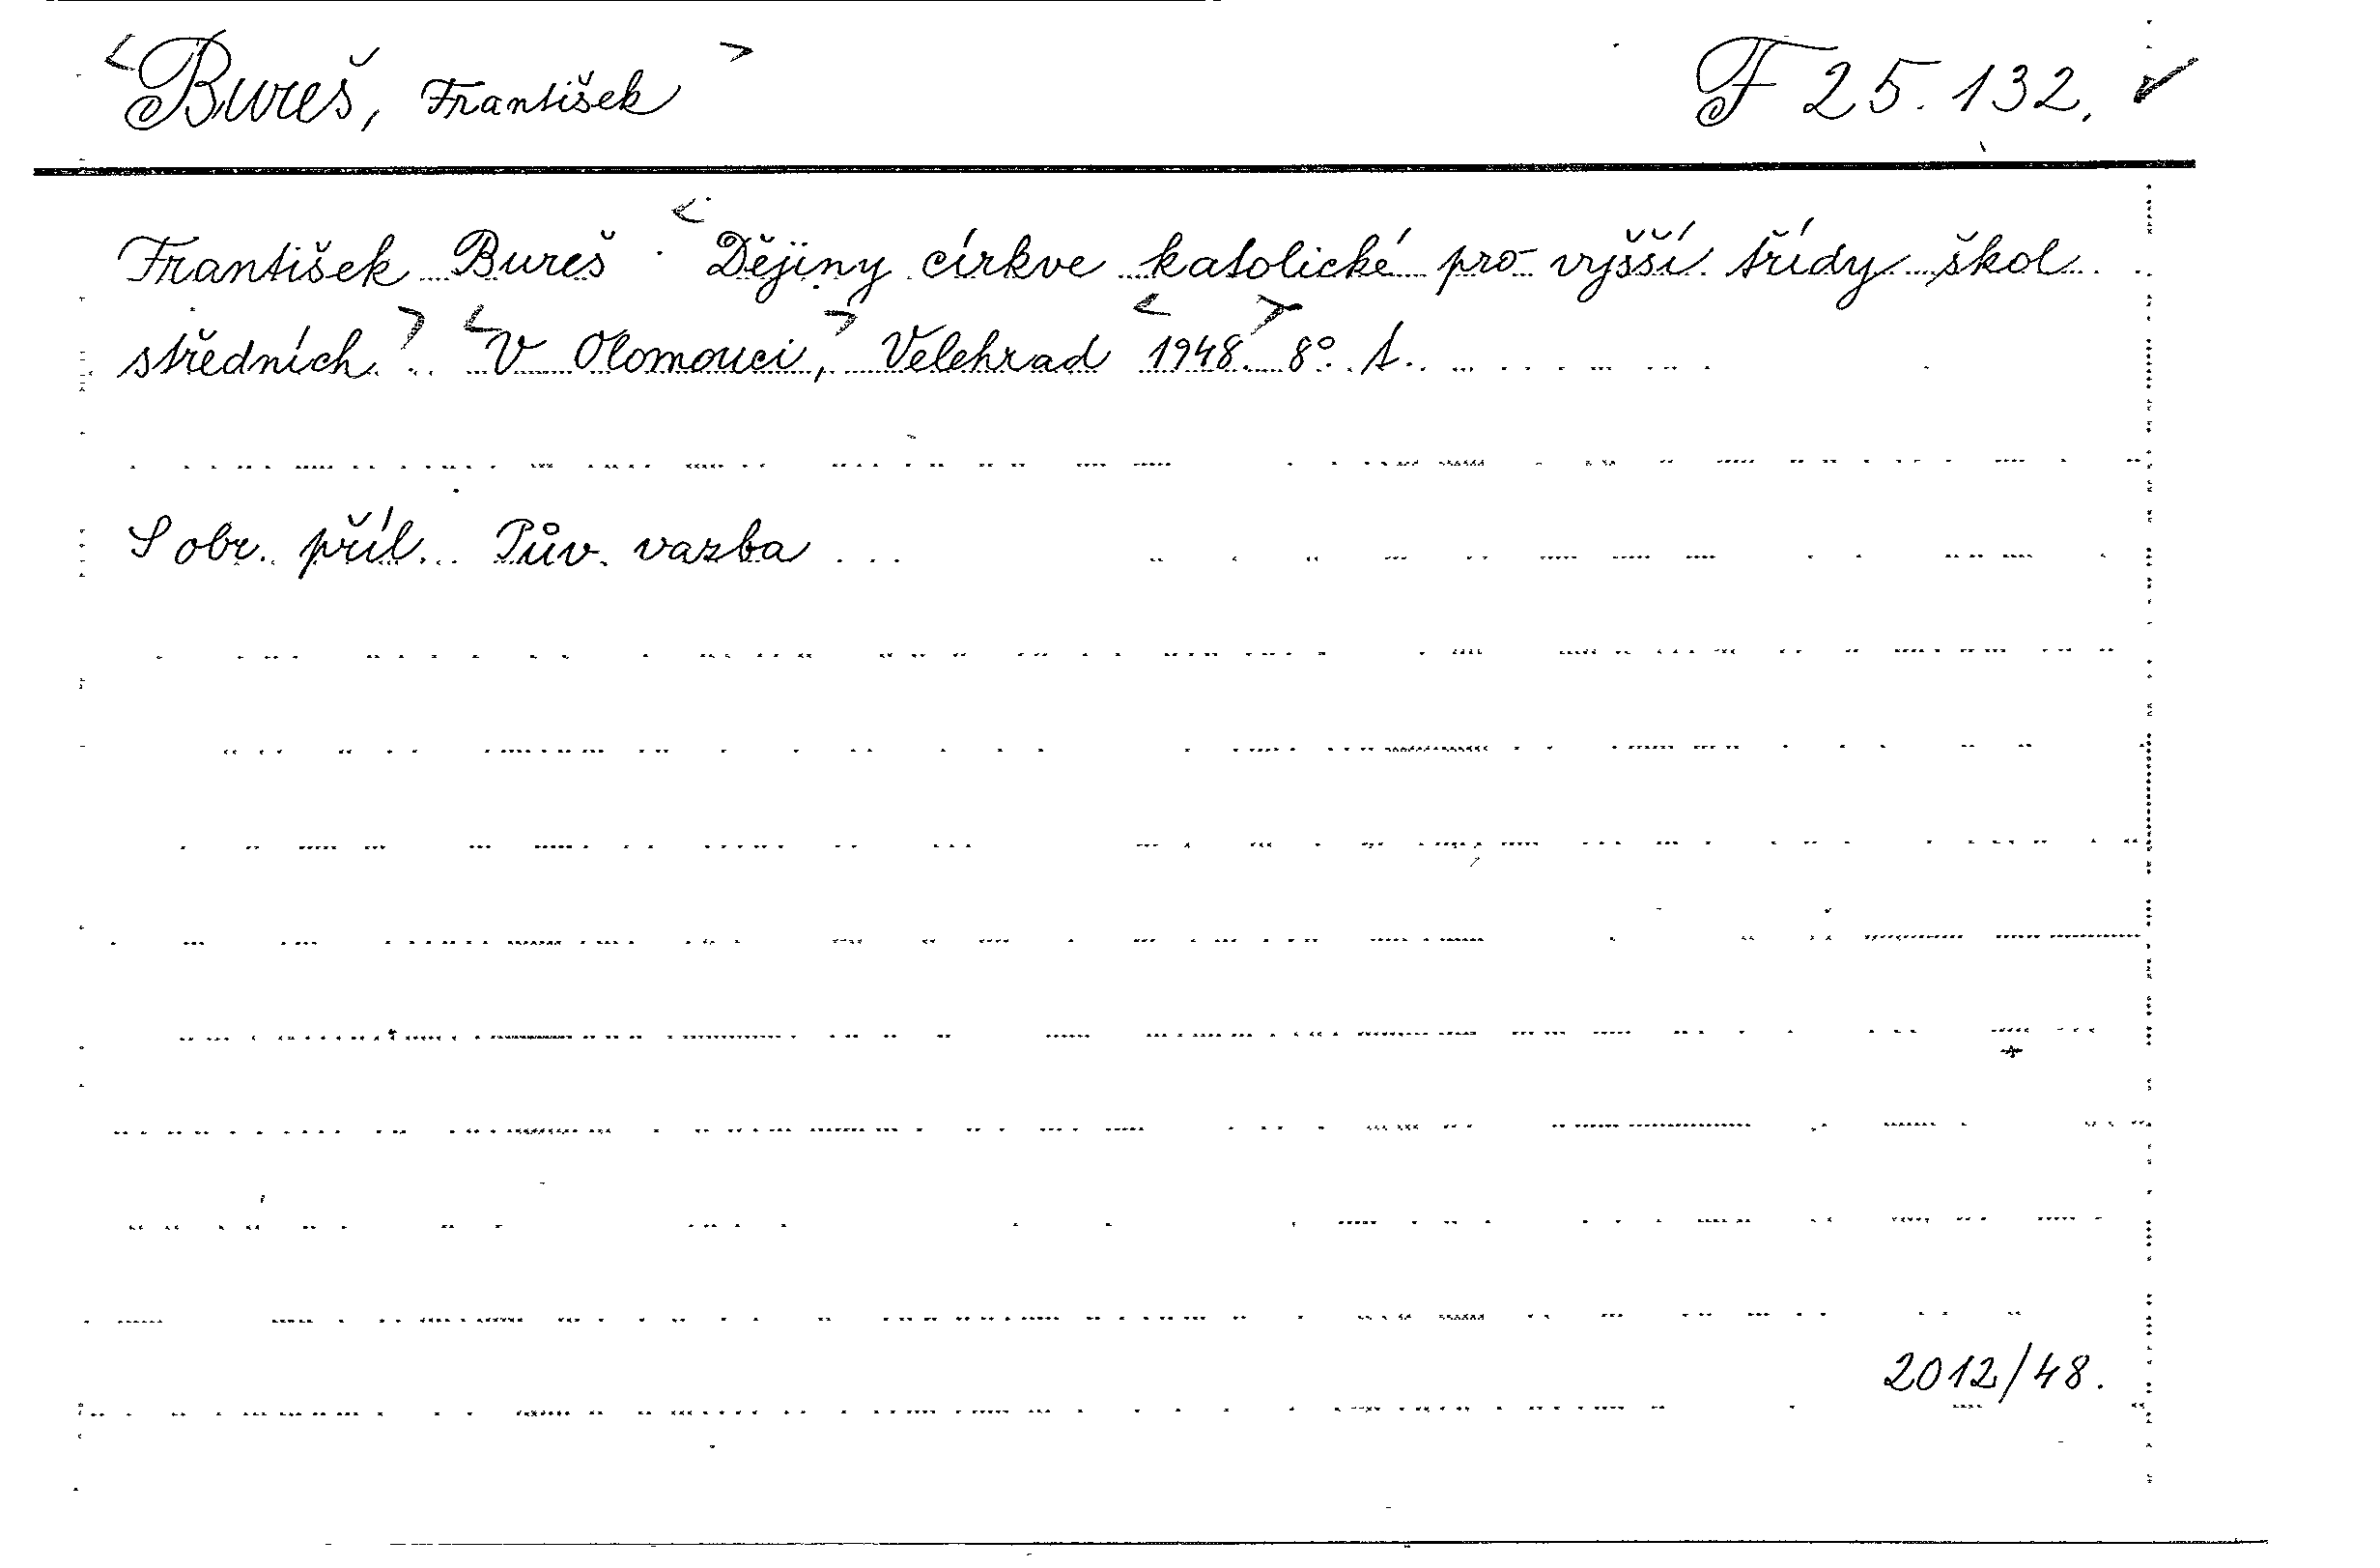 <Bureš, František>
F 25.132. ✓
František Bureš <Dějiny církve katolické pro vyšší třídy škol
středních.> <V Olomouci,> Velehrad <1948.> 8°. t.
S obr. příl. Pův. vazba
2012/48.